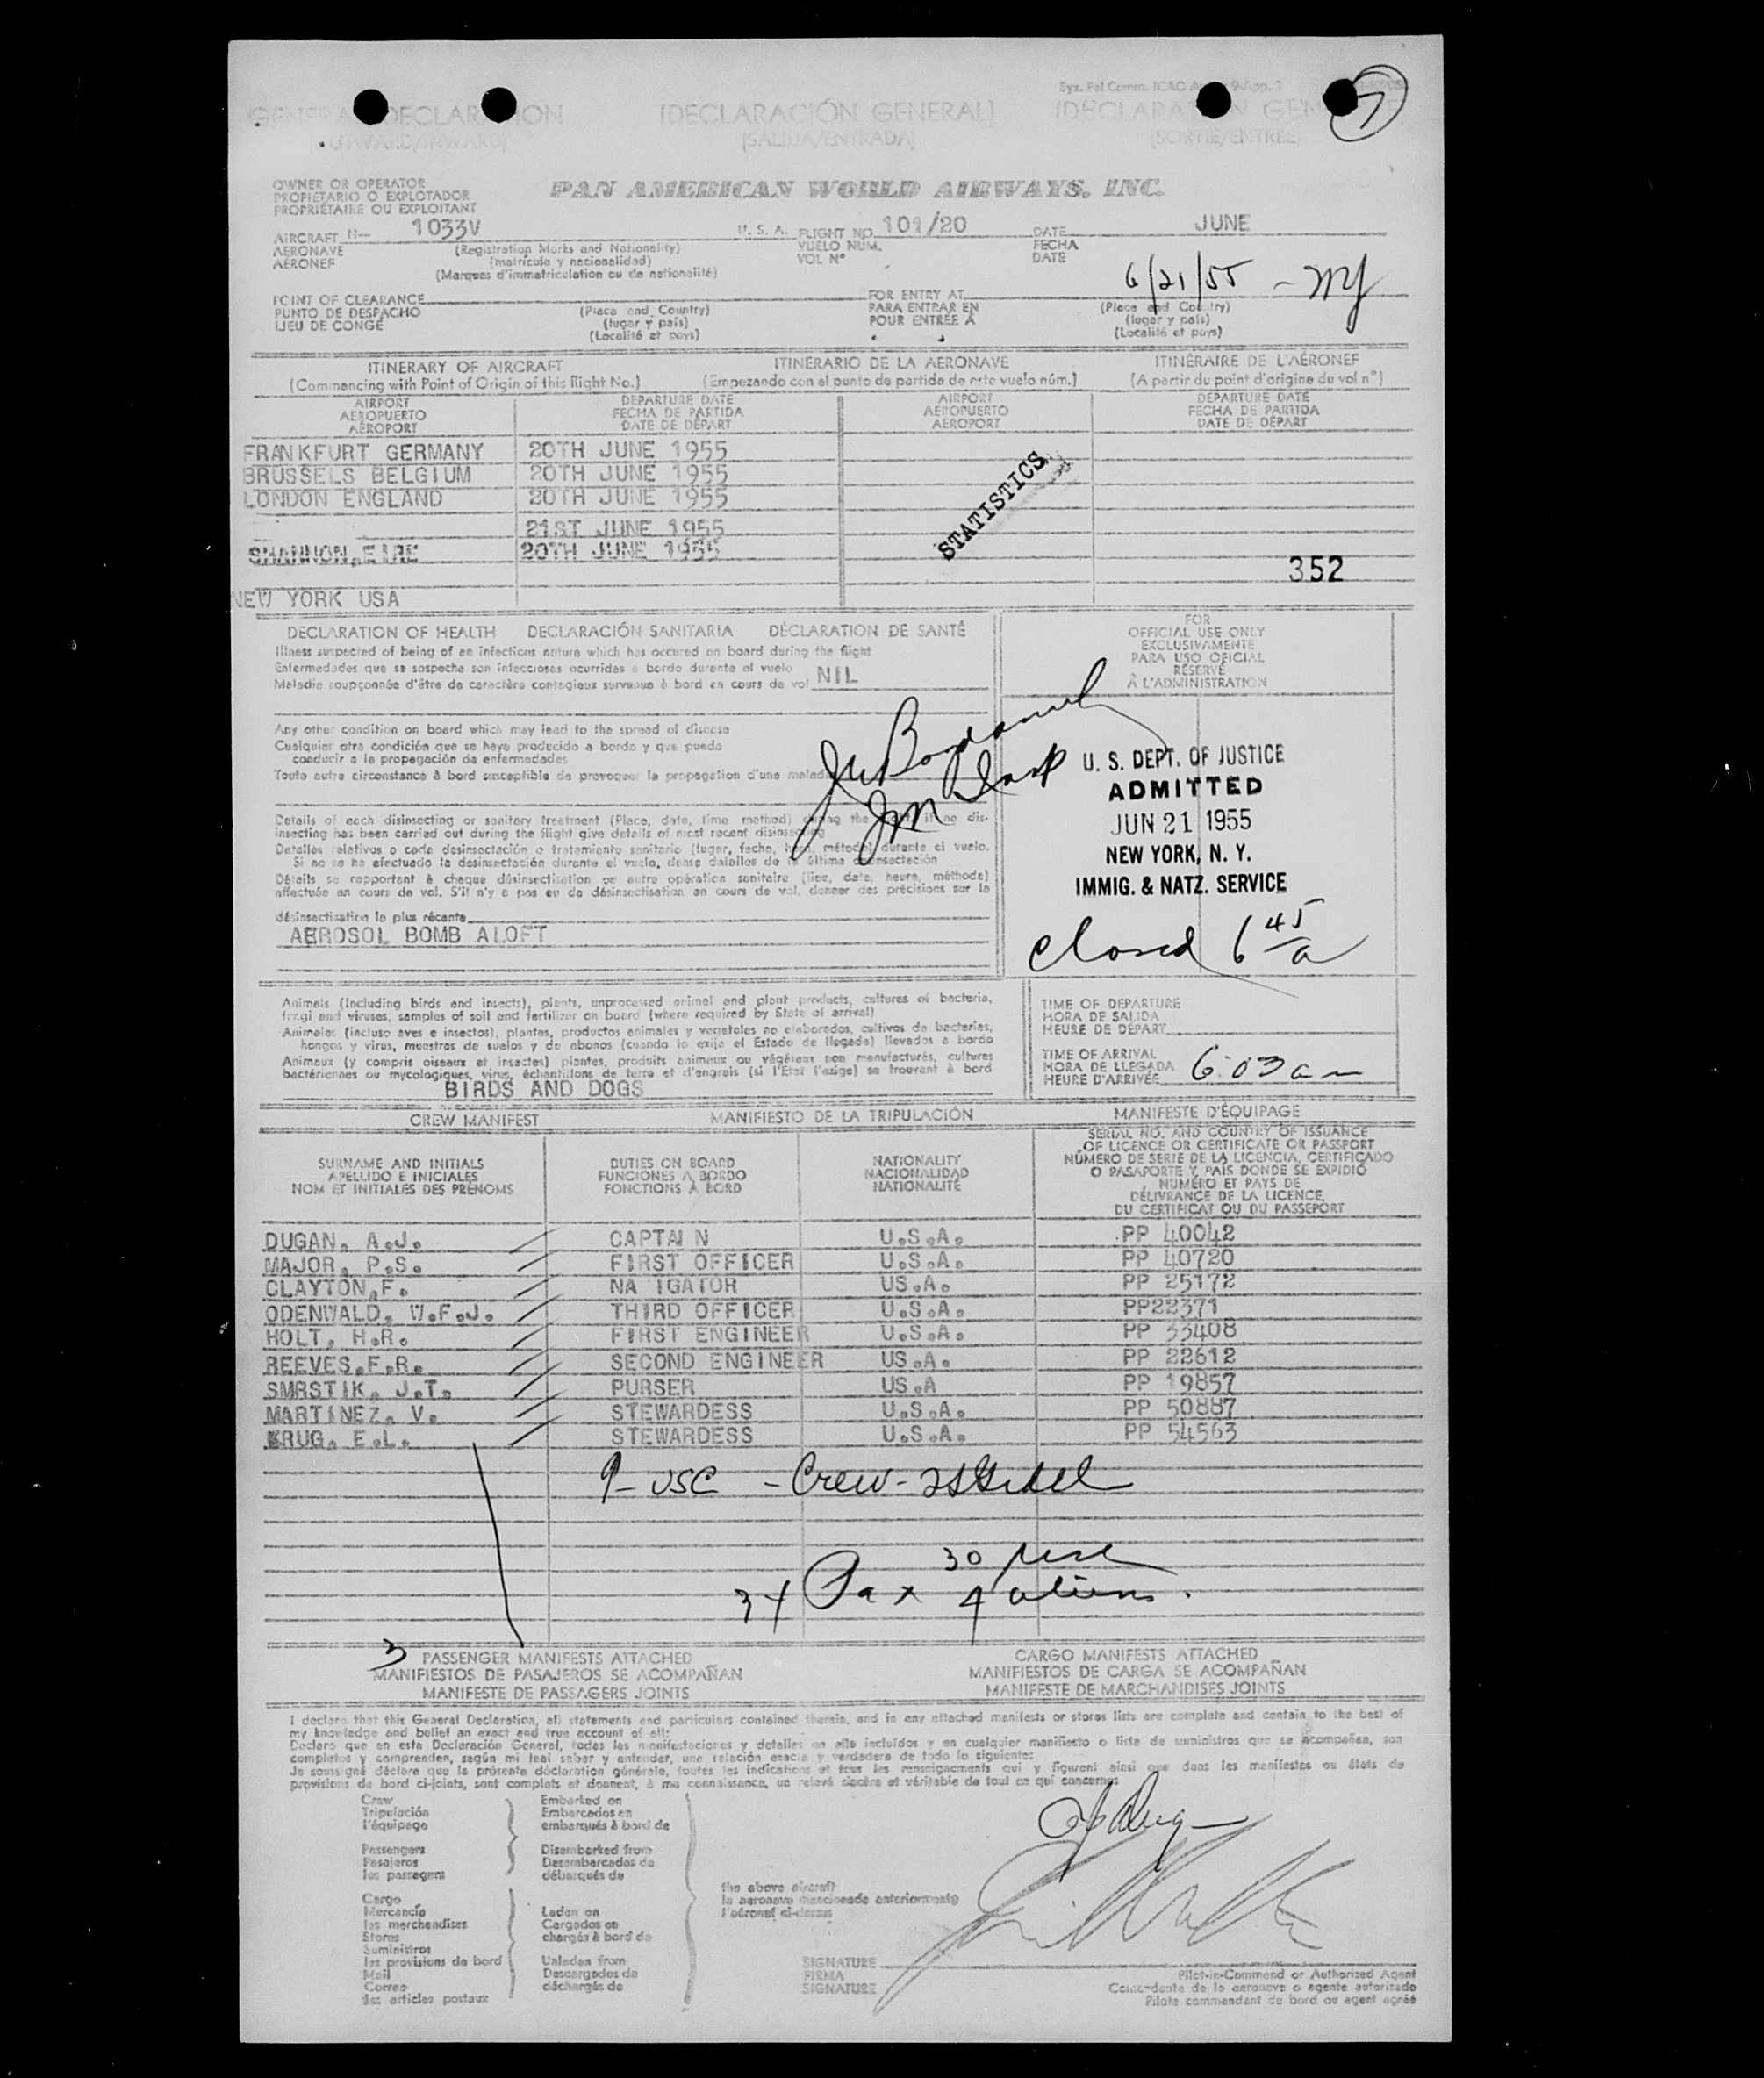 Sys. Fal Comm. ICAO
7
GENERAL DECLARATION [DECLARACIÓN GENERAL] [DECLARATION GENERALE]
(OUTWARD/INWARD) (SALIDA/ENTRADA) (SORTIE/ENTREE)
OWNER OR OPERATOR
PROPIETARIO O EXPLOTADOR
PROPRIÉTAIRE OU EXPLOITANT
PAN AMERICAN WORLD AIRWAYS, INC.
AIRCRAFT N-- 1033V U. S. A. FLIGHT NO. 101/20 DATE JUNE
AERONAVE (Registration Marks and Nationality) VUELO NUM. FECHA
AÉRONEF (matrícula y nacionalidad) VOL N° DATE
(Marques d'immatriculation ou de nationalité)
6/21/55 - NY
POINT OF CLEARANCE (Place and Country) FOR ENTRY AT (Place and Country)
PUNTO DE DESPACHO (lugar y país) PARA ENTRAR EN (lugar y país)
LIEU DE CONGÉ (Localité et pays) POUR ENTRÉE À (Localité et pays)
ITINERARY OF AIRCRAFT ITINERARIO DE LA AERONAVE ITINÉRAIRE DE L'AÉRONEF
(Commencing with Point of Origin of this flight No.) (Empezando con el punto de partida de este vuelo núm.) (A partir du point d'origine du vol n°)
AIRPORT DEPARTURE DATE AIRPORT DEPARTURE DATE
AEROPUERTO FECHA DE PARTIDA AEROPUERTO FECHA DE PARTIDA
AÉROPORT DATE DE DÉPART AÉROPORT DATE DE DÉPART
FRANKFURT GERMANY 20TH JUNE 1955
BRUSSELS BELGIUM 20TH JUNE 1955
LONDON ENGLAND 20TH JUNE 1955
STATISTICS
21ST JUNE 1955
SHANNON,EIRE 20TH JUNE 1955
352
NEW YORK USA
DECLARATION OF HEALTH DECLARACIÓN SANITARIA DÉCLARATION DE SANTÉ
Illness suspected of being of an infectious nature which has occured on board during the flight
Enfermedades que se sospecha son infecciosas ocurridas a bordo durante el vuelo
Maladie soupçonnée d'être de caractère contagieux survenue à bord en cours de vol NIL
FOR
OFFICIAL USE ONLY
EXCLUSIVAMENTE
PARA USO OFICIAL
RÉSERVÉ
À L'ADMINISTRATION
Any other condition on board which may lead to the spread of disease
Cualquier otra condición que se haya producido a bordo y que pueda
conducir a la propagación de enfermedades
Toute autre circonstance à bord susceptible de provoquer la propagation d'une maladie
U. S. DEPT. OF JUSTICE
ADMITTED
JUN 21 1955
NEW YORK, N. Y.
IMMIG. & NATZ. SERVICE
Closed 6 45 a
Details of each disinsecting or sanitary treatment (Place, date, time method) during the flight, if no dis-
insecting has been carried out during the flight give details of most recent disinsecting
Detalles relativos a cada desinsectación o tratamiento sanitario (lugar, fecha, hora, método) durante el vuelo.
Si no se ha efectuado la desinsectación durante el vuelo, dense detalles de la última desinsectación
Détails se rapportant à chaque désinsectisation ou autre opération sanitaire (lieu, date, heure, méthode)
effectuée en cours de vol. S'il n'y a pas eu de désinsectisation en cours de vol, donner des précisions sur la
désinsectisation la plus récente
AEROSOL BOMB ALOFT
Animals (Including birds and insects), plants, unprocessed animal and plant products, cultures of bacteria,
fungi and viruses, samples of soil and fertilizer on board (where required by State of arrival)
Animales (incluso aves e insectos), plantas, productos animales y vegetales no elaborados, cultivos de bacterias,
hongos y virus, muestras de suelos y de abonos (cuando lo exija el Estado de llegada) llevados a bordo
Animaux (y compris oiseaux et insectes) plantes, produits animaux ou végétaux non manufacturés, cultures
bactériennes ou mycologiques, virus, échantillons de terre et d'engrais (si l'Etat l'exige) se trouvant à bord
BIRDS AND DOGS
TIME OF DEPARTURE
HORA DE SALIDA
HEURE DE DÉPART
TIME OF ARRIVAL
HORA DE LLEGADA
HEURE D'ARRIVÉE 6:03 am
CREW MANIFEST MANIFIESTO DE LA TRIPULACIÓN MANIFESTE D'ÉQUIPAGE
SURNAME AND INITIALS
APELLIDO E INICIALES
NOM ET INITIALES DES PRÉNOMS
DUTIES ON BOARD
FUNCIONES A BORDO
FONCTIONS À BORD
NATIONALITY
NACIONALIDAD
NATIONALITÉ
SERIAL NO. AND COUNTRY OF ISSUANCE
OF LICENCE OR CERTIFICATE OR PASSPORT
NÚMERO DE SERIE DE LA LICENCIA, CERTIFICADO
O PASAPORTE Y PAÍS DONDE SE EXPIDIÓ
NUMÉRO ET PAYS DE
DÉLIVRANCE DE LA LICENCE,
DU CERTIFICAT OU DU PASSEPORT
DUGAN, A.J. CAPTAIN U.S.A. PP 40042
MAJOR, P.S. FIRST OFFICER U.S.A. PP 40720
CLAYTON,F. NA IGATOR US.A. PP 25172
ODENWALD, W.F.J. THIRD OFFICER U.S.A. PP22371
HOLT, H.R. FIRST ENGINEER U.S.A. PP 33408
REEVES,F.R. SECOND ENGINEER US.A. PP 22612
SMRSTIK, J.T. PURSER US.A PP 19857
MARTINEZ, V. STEWARDESS U.S.A. PP 50887
KRUG, E.L. STEWARDESS U.S.A. PP 54563
9- USC - Crew-
30
34 Pax 4 aliens.
3 PASSENGER MANIFESTS ATTACHED CARGO MANIFESTS ATTACHED
MANIFIESTOS DE PASAJEROS SE ACOMPAÑAN MANIFIESTOS DE CARGA SE ACOMPAÑAN
MANIFESTE DE PASSAGERS JOINTS MANIFESTE DE MARCHANDISES JOINTS
I declare that this General Declaration, all statements and particulars contained therein, and in any attached manifests or stores lists are complete and contain to the best of
my knowledge and belief an exact and true account of all:
Declaro que en esta Declaración General, todas las manifestaciones y detalles en ella incluídos y en cualquier manifiesto o lista de suministros que se acompañan, son
completos y comprenden, según mi leal saber y entender, una relación exacta y verdadera de todo lo siguiente:
Je soussigné déclare que la présente déclaration générale, toutes les indications et tous les renseignements qui y figurent ainsi que dans les manifestes ou états de
provisions de bord ci-joints, sont complets et donnent, à ma connaissance, un relevé sincère et véritable de tout ce qui concerne:
Crew
Tripulación
l'équipage
Passengers
Pasajeros
les passagers
Cargo
Mercancía
les merchandises
Stores
Suministros
les provisions de bord
Mail
Correo
des articles postaux
Embarked on
Embarcados en
embarqués à bord de
Disembarked from
Desembarcados de
débarqués de
Laden on
Cargados en
chargés à bord de
Unladen from
Descargados de
déchargés de
the above aircraft
la aeronave mencionada anteriormente
l'aéronef ci-dessus
SIGNATURE
FIRMA
SIGNATURE
Pilot-in-Command or Authorized Agent
Comandante de la aeronave o agente autorizado
Pilote commandant de bord ou agent agréé